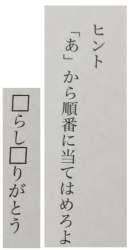 ヒント
「あ」から順番に当てはめろよ
□らし□りがとう